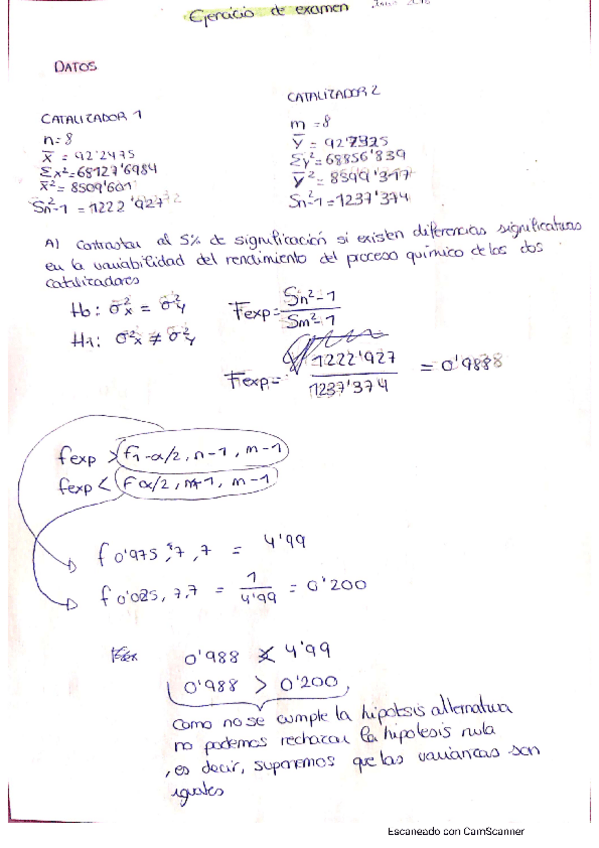 Ejercicio de examen
DATOS
CATALIZADOR 1
n=8
x̄ = 92'2475
Σx²=68127'6984
x̄²= 8509'601
Sn²-1 = 1222'927
CATALIZADOR 2
m=8
ȳ = 92'7325
Σy²=68856'839
ȳ²= 8599'317
Sn²-1=1237'374
A) Contrastar al 5% de significación si existen diferencias significativas
en la variabilidad del rendimiento del proceso químico de los dos
catalizadores
H0: σ²x = σ²y
H1: σ²x ≠ σ²y
Fexp= Sn²-1 / Sm²-1
Fexp= 1222'927 / 1237'374 = 0'9888
fexp > f1-α/2, n-1, m-1
fexp < Fα/2, n-1, m-1
f 0'975, 7, 7 = 4'99
f 0'025, 7,7 = 1/4'99 = 0'200
0'988 ≯ 4'99
0'988 > 0'200,
como no se cumple la hipotesis alternativa
no podemos rechazar la hipotesis nula
, es decir, suponemos que las varianzas son
iguales
Escaneado con CamScanner